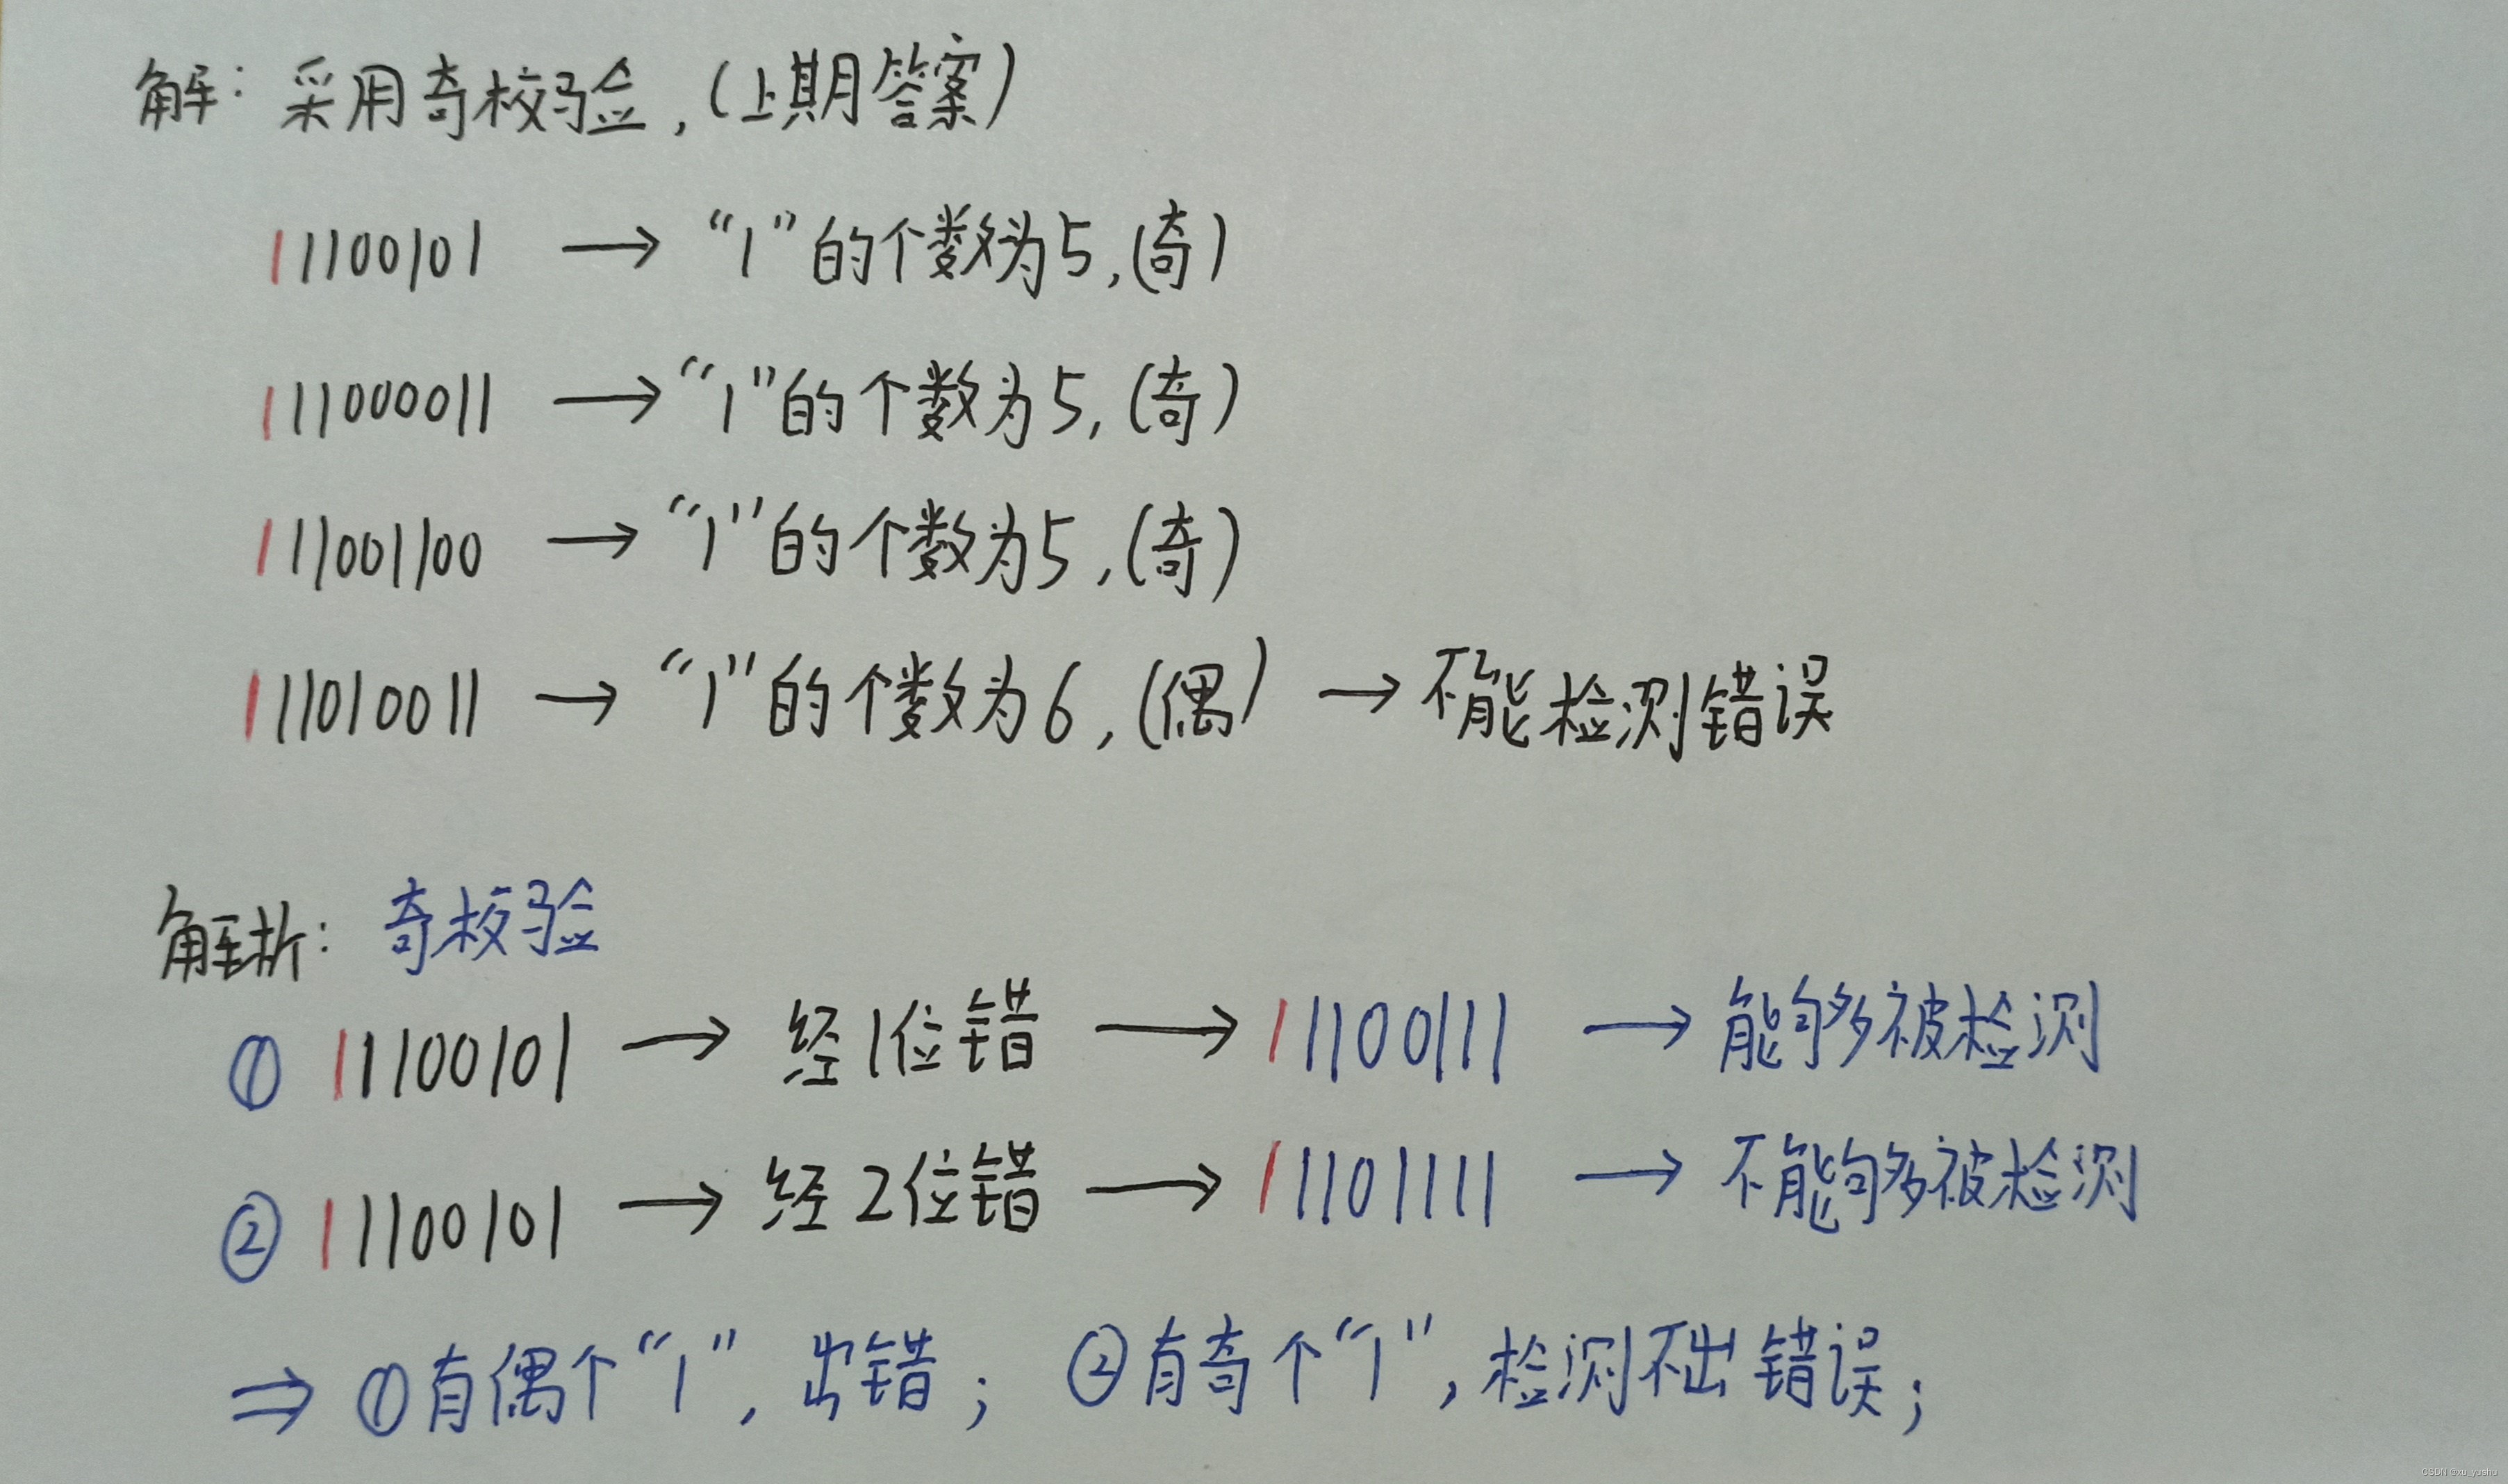 解：采用奇校验，（上期答案）
11100101 → “1”的个数为5，（奇）
111000011 → “1”的个数为5，（奇）
111001100 → “1”的个数为5，（奇）
111010011 → “1”的个数为6，（偶） → 不能检测错误
解析：奇校验
① 11100101 → 经1位错 → 11100111 → 能够被检测
② 11100101 → 经2位错 → 11101111 → 不能够被检测
⇒ ①有偶个“1”，出错； ②有奇个“1”，检测不出错误；
CSDN @xu_yushu